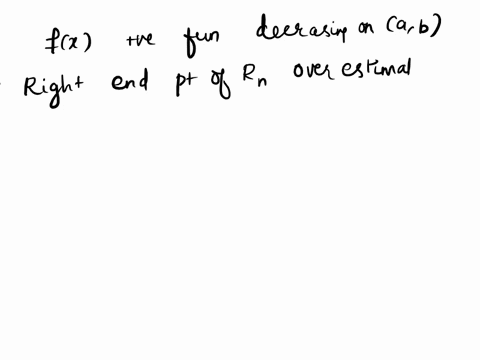 f(x) +ve fun decrasing on (a,b)
Right end pt of Rn over estimal